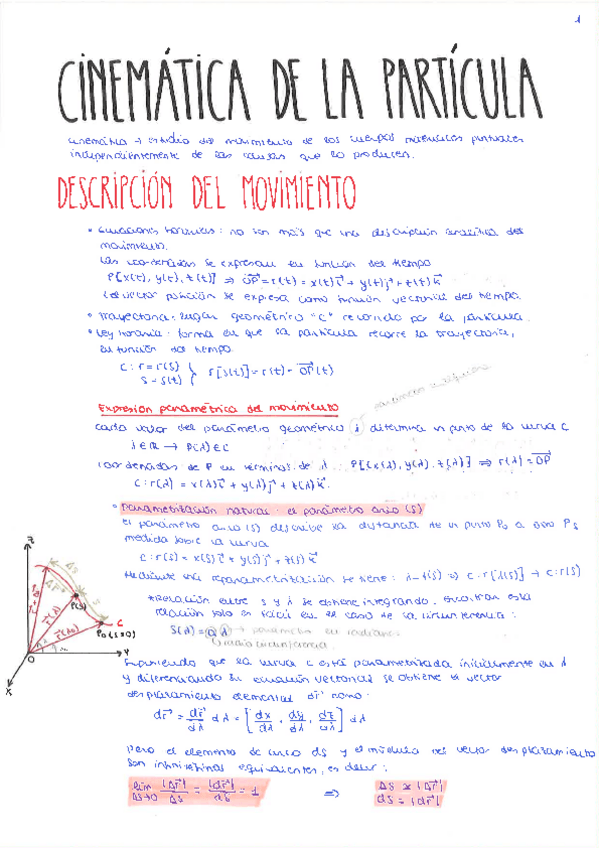 1
CINEMÁTICA DE LA PARTÍCULA
cinemática → estudio del movimiento de los cuerpos materiales puntuales
independientemente de las causas que lo producen.
DESCRIPCIÓN DEL MOVIMIENTO
• Ecuaciones horarias: no son más que una descripción analítica del
movimiento.
Las coordenadas se expresan en función del tiempo
P[x(t), y(t), z(t)] ⇒ OP = r(t) = x(t)i + y(t)j + z(t)k
el vector posición se expresa como función vectorial del tiempo.
• Trayectoria: lugar geométrico "C" recorrido por la partícula.
• Ley horaria: forma en que la partícula recorre la trayectoria,
en función del tiempo.
C: r = r(s)
s = s(t) } r[s(t)] = r(t) = OP(t)
Expresión paramétrica del movimiento
cada valor del parámetro geométrico λ determina un punto de la curva C
λ ∈ ℝ → P(λ) ∈ C
coordenadas de P en términos de λ P[x(λ), y(λ), z(λ)] ⇒ r(λ) = OP
C: r(λ) = x(λ)i + y(λ)j + z(λ)k
• Parametrización natural: el parámetro arco (s)
El parámetro arco (s) describe la distancia de un punto P0 a otro Ps
medida sobre la curva
C: r(s) = x(s)i + y(s)j + z(s)k
Mediante una reparametrización se tiene: λ = f(s) ⇒ C: r[λ(s)] → C: r(s)
relación entre s y λ se obtiene integrando. Encontrar esta
relación solo es fácil en el caso de la circunferencia:
s(λ) = aλ → parámetro en radianes
radio circunferencia
Suponiendo que la curva C está parametrizada inicialmente en λ
y diferenciando su ecuación vectorial se obtiene el vector
desplazamiento elemental dr como:
dr = dr/dλ dλ = [dx/dλ, dy/dλ, dz/dλ] dλ
Pero el elemento de arco ds y el módulo del vector desplazamiento
son infinitésimos equivalentes, es decir:
lim Δs→0 |Δr|/Δs = |dr|/ds = 1 ⇒ Δs ≈ |Δr|
ds = |dr|
Z
Δs
P(s)
C
P0 (s=0)
O
Y
X